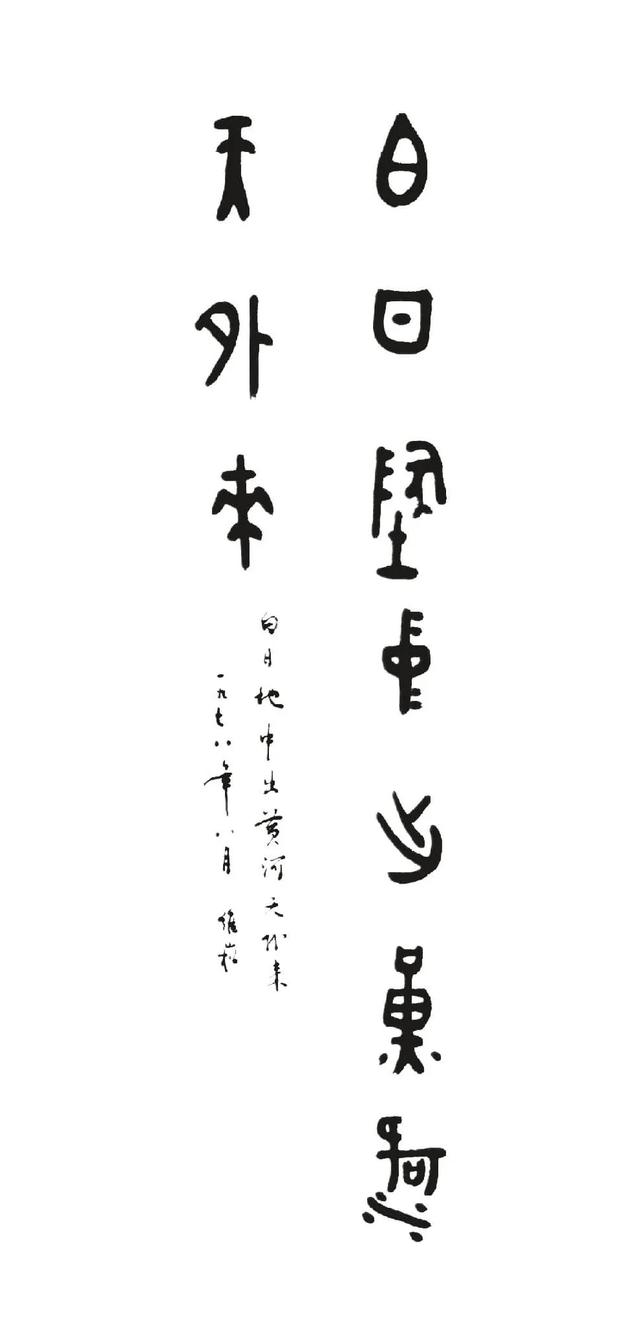 白日地中出黄河
天外来
白日地中出黄河天外来
一九七八年八月 维崧